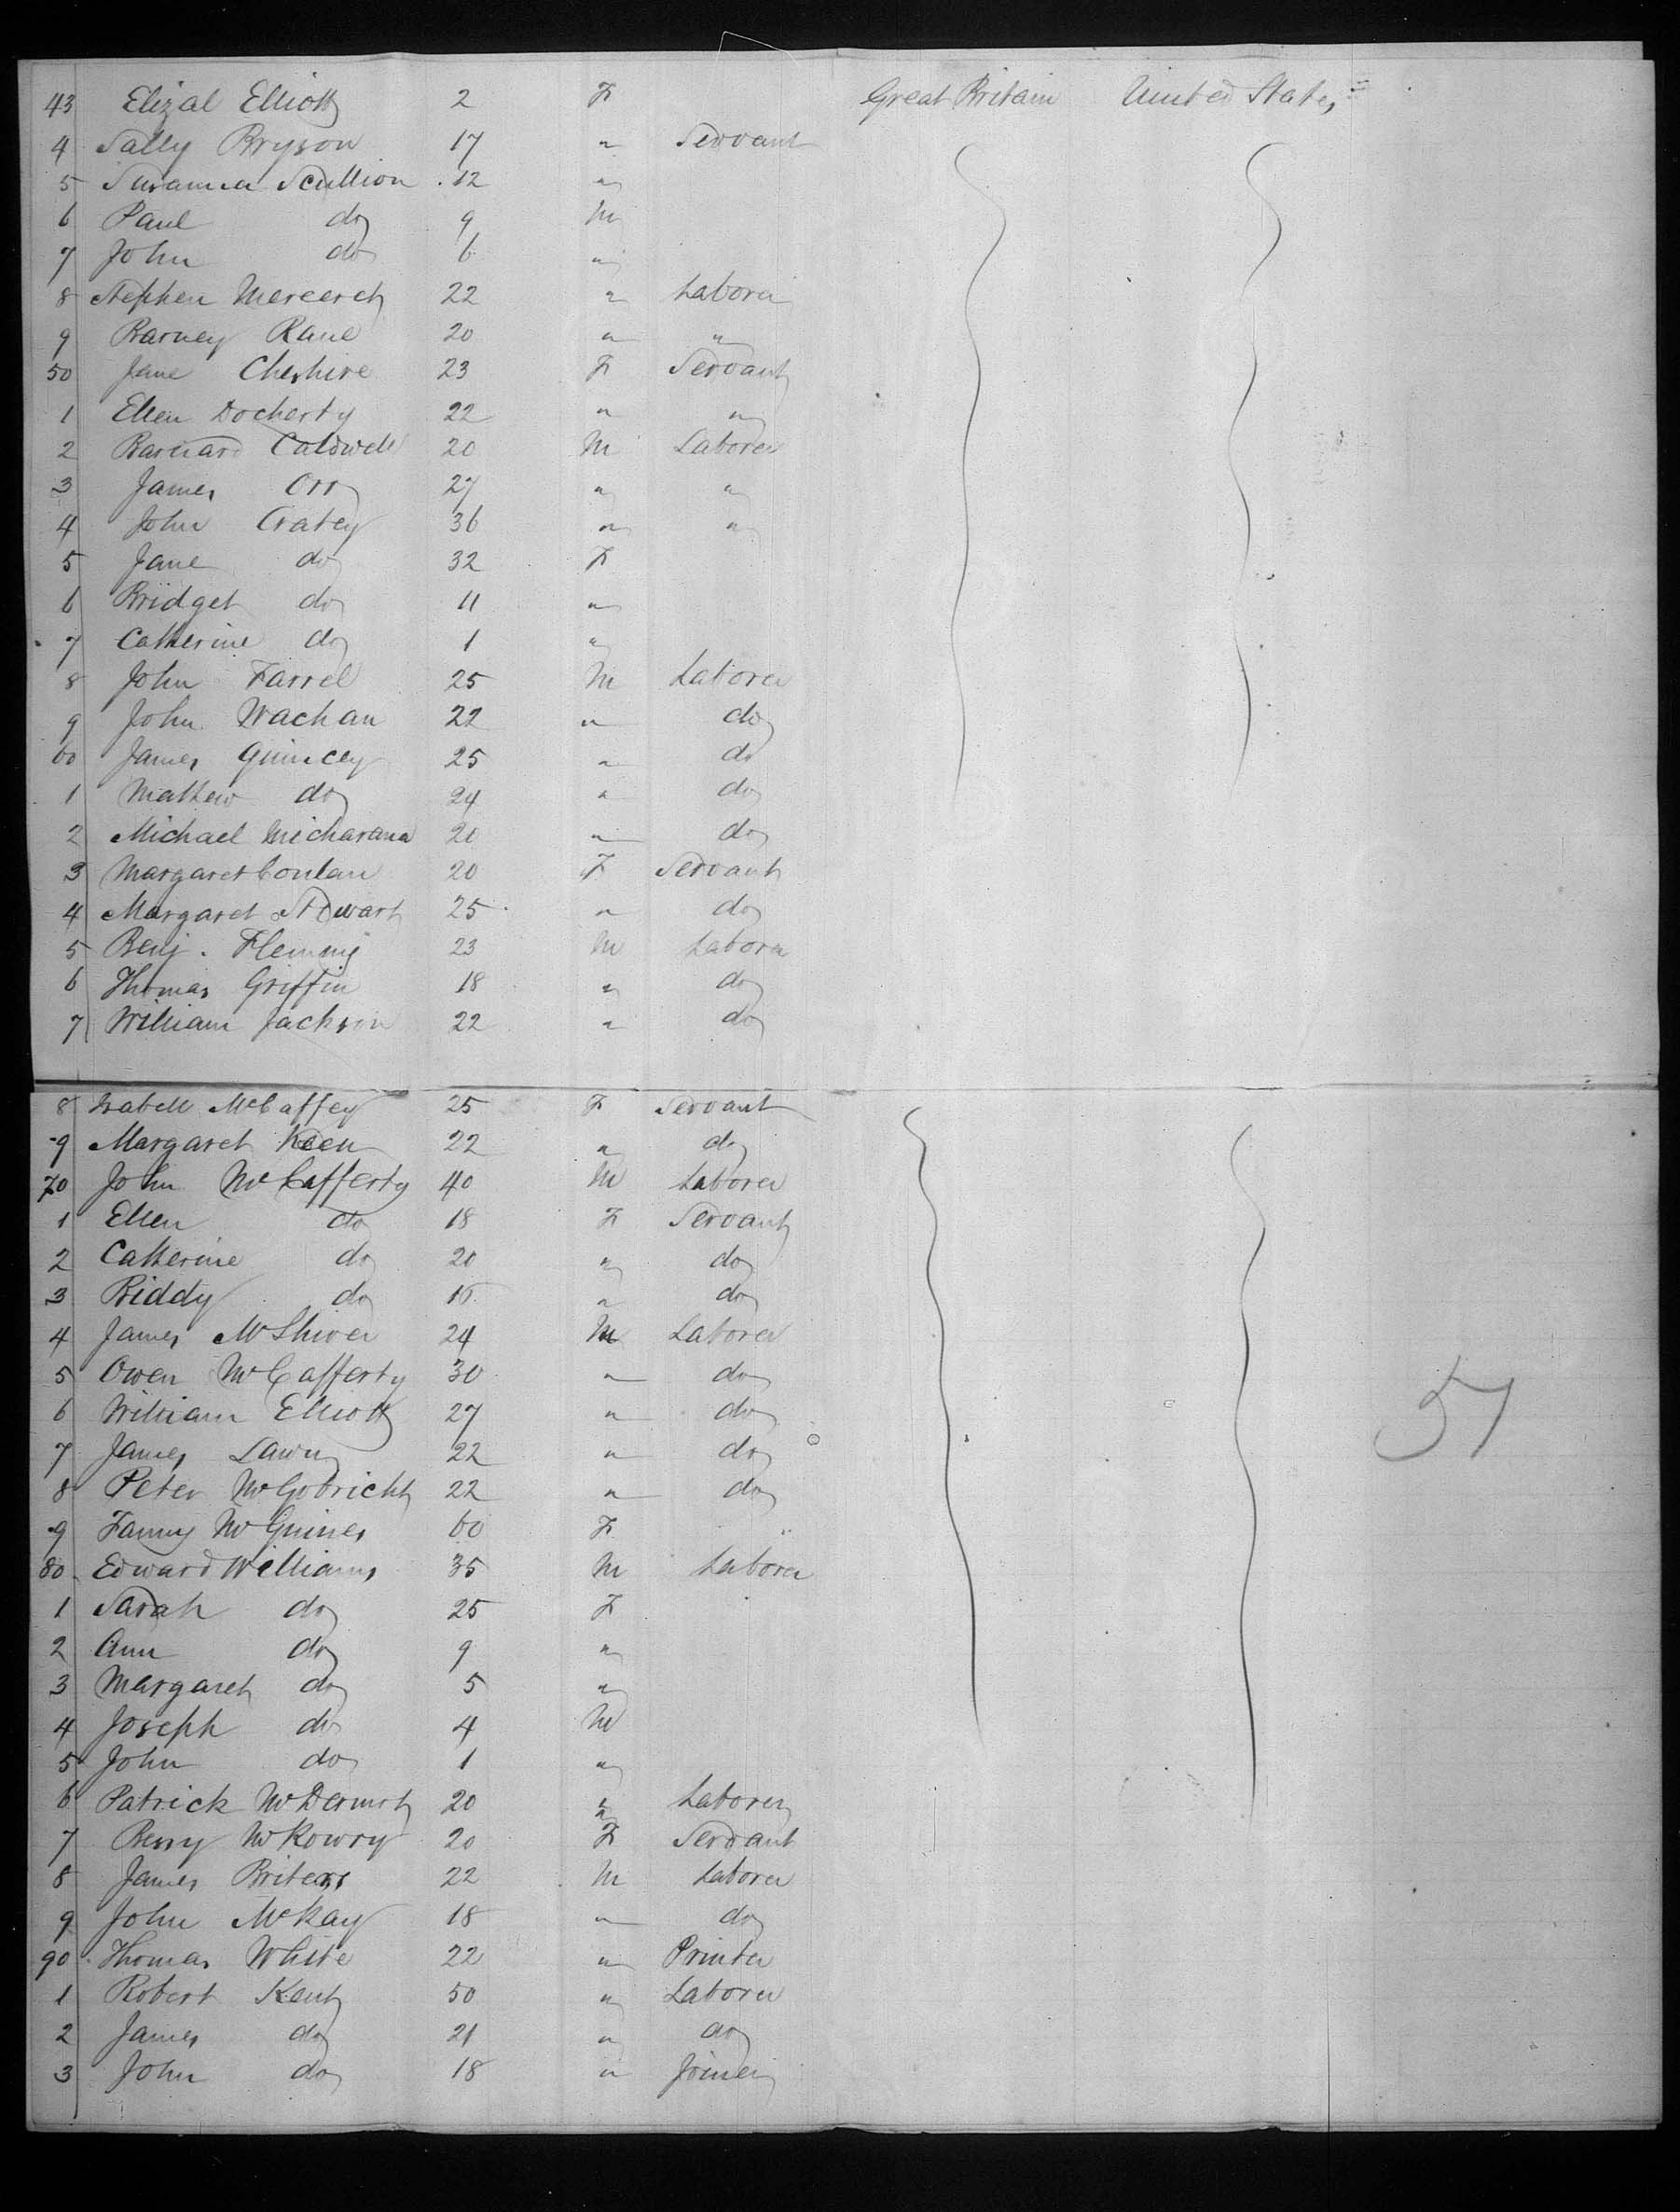 43 Elizal Elliott 2 F Great Britain United States
4 Sally Bryson 17 " Servant
5 Susanna Scullion 12 "
6 Paul do 9 M
7 John do 6 "
8 Stephen 22 " Laborer
9 Barney Kane 20 " "
50 Jane Cheshire 23 F Servant
1 Ellen Docherty 22 " "
2 Barnard Caldwell 20 M Laborer
3 James Orr 27 " "
4 John Cratey 36 " "
5 Jane do 32 F
6 Bridget do 11 "
7 Catherine do 1 "
8 John Farrel 25 M Laborer
9 John Wachan 22 " do
60 James Quincey 25 " do
1 Mathew do 24 " do
2 Michael 20 " do
3 Margaret Conlan 20 F Servant
4 Margaret Stewart 25 " do
5 Benj. Fleming 23 M Laborer
6 Thomas Griffin 18 " do
7 William Jackson 22 " do
8 Isabell McCaffey 25 F Servant
9 Margaret Keen 22 " do
70 John McCafferty 40 M Laborer
1 Ellen do 18 F Servant
2 Catherine do 20 " do
3 Biddy do " do
4 James McShiver 24 M Laborer
5 Owen McCafferty 30 " do
6 William Elliott 27 " do
7 James Lawn 22 " do
8 Peter 22 " do
9 Fanny McGuines 60 F
80 Edward Williams 35 M Laborer
1 Sarah do 25 F
2 Ann do 9 "
3 Margaret do 5 "
4 Joseph do 4 M
5 John do 1 "
6 Patrick McDermot 20 " Laborer
7 Bessy McKowry 20 F Servant
8 James 22 M Laborer
9 John McKay 18 " do
90 Thomas White 22 " Printer
1 Robert Kent 50 " Laborer
2 James do 21 " do
3 John do 18 " Joiner
57